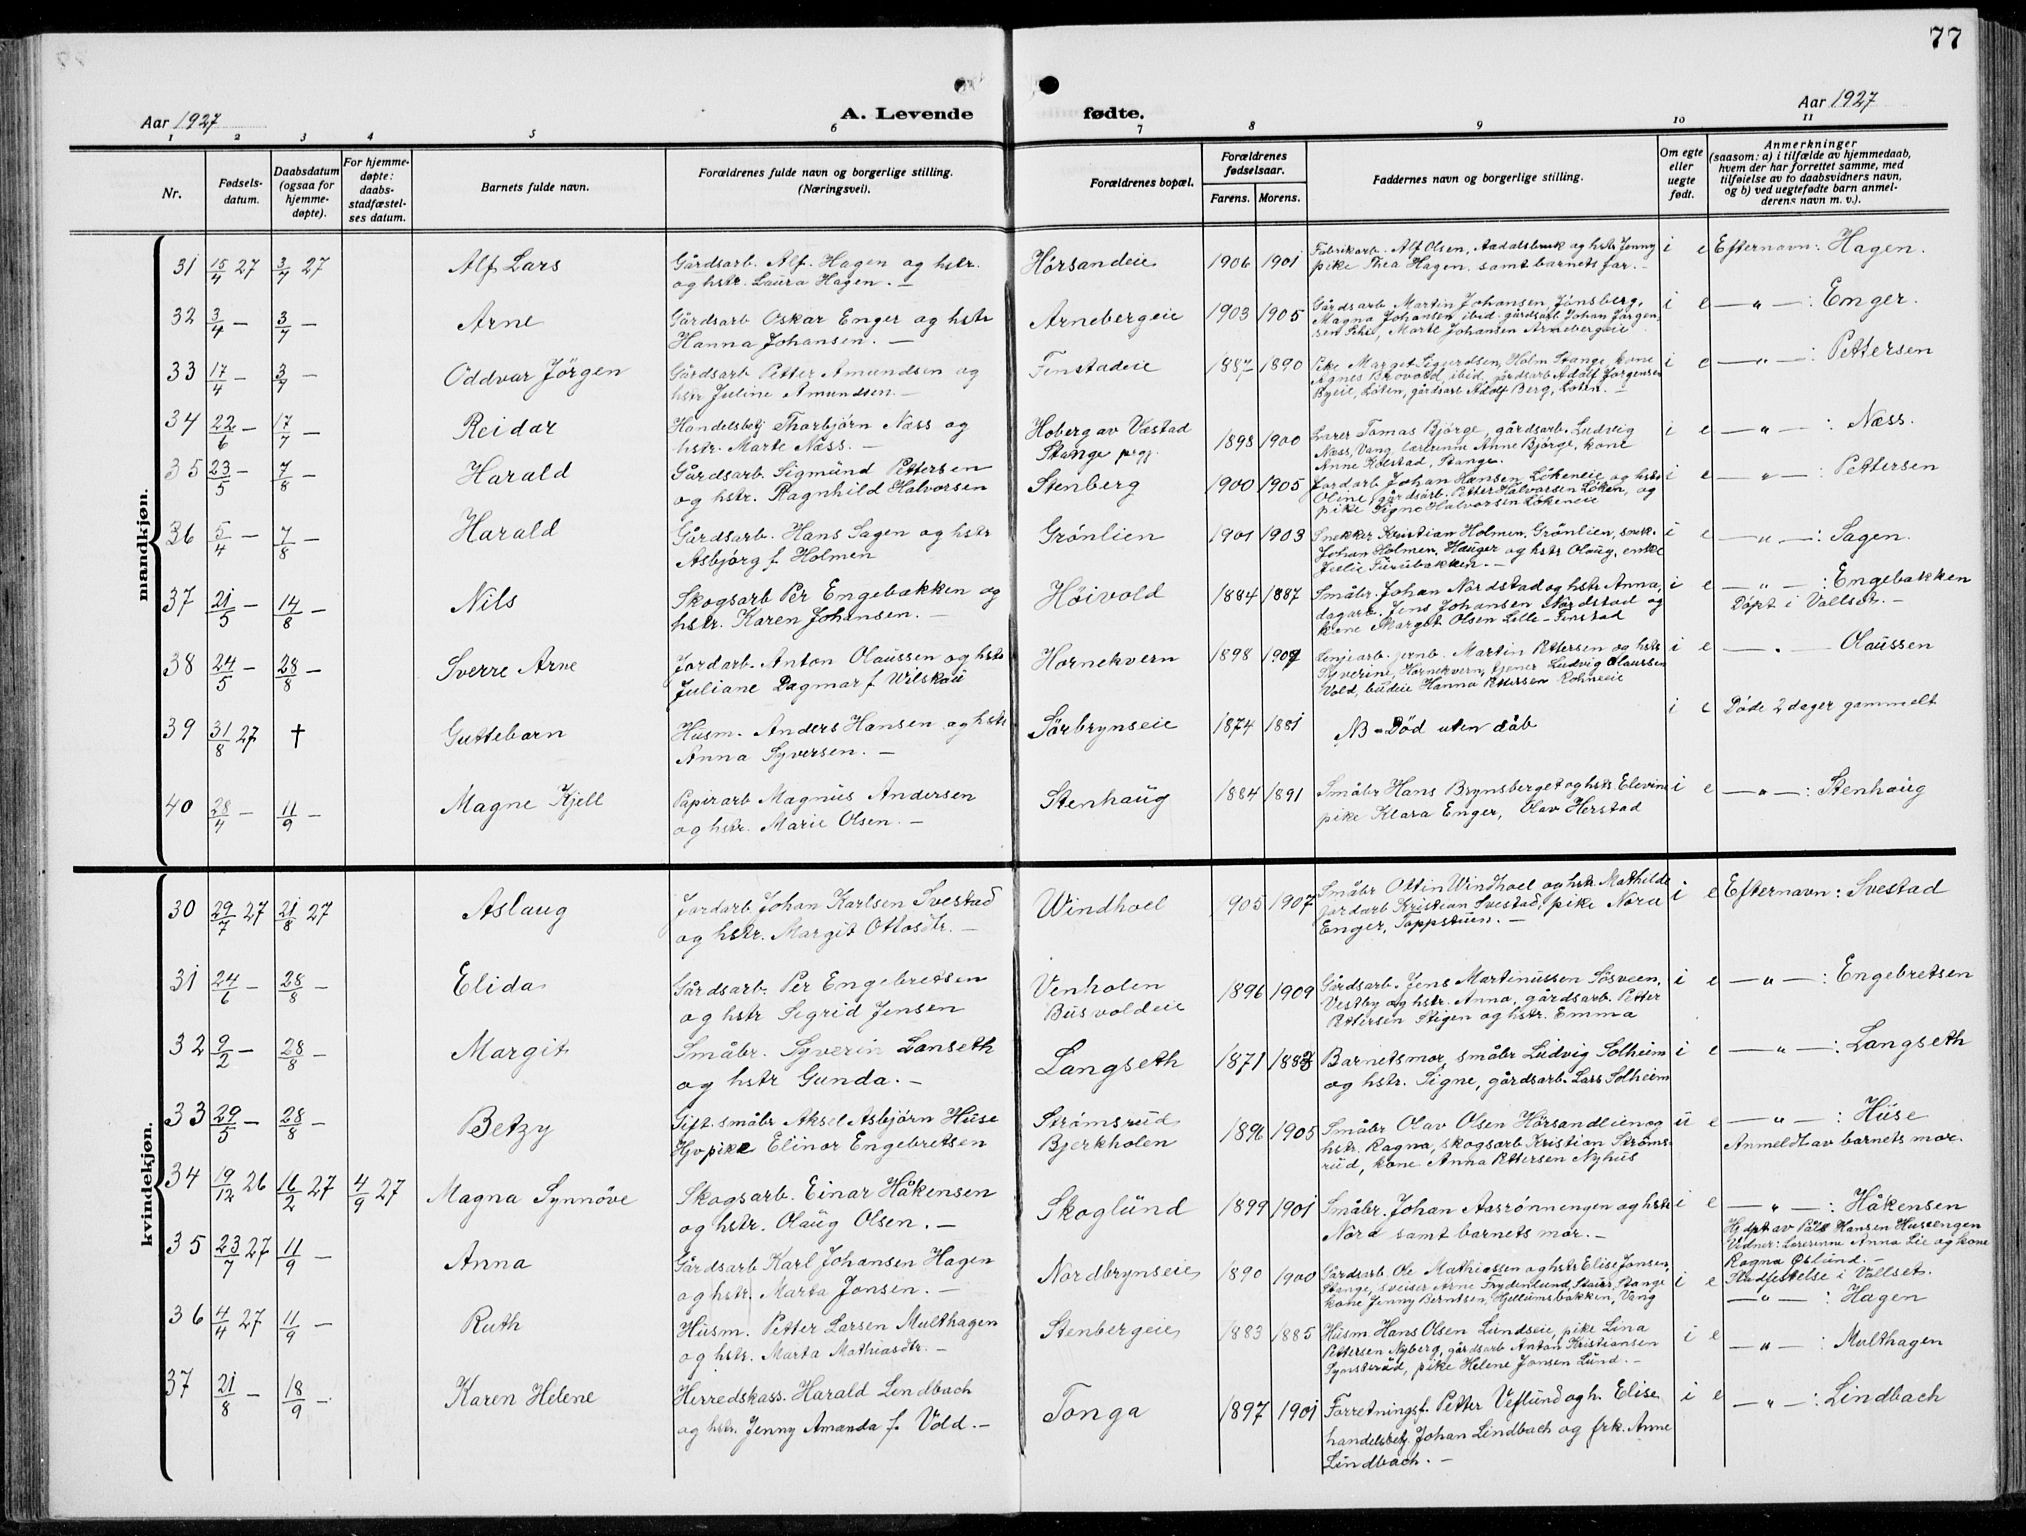 77
Aar 1927
A. Levende fødte.
Aar 1927
1 2 3 4 5 6 7 8 9 10 11
Nr.
Fødsels-
datum.
Daabsdatum
(ogsaa for
hjemme-
døpte).
For hjemme-
døpte:
daabs-
stadfæstel-
ses datum.
Barnets fulde navn.
Forældrenes fulde navn og borgerlige stilling.
(Næringsvei).
Forældrenes bopæl.
Forældrenes
fødselsaar.
Farens. Morens.
Faddernes navn og borgerlige stilling.
Om egte
eller
uegte
født.
Anmerkninger
(saasom: a) i tilfælde av hjemmedaab,
hvem der har forrettet samme, med
tilføielse av to daabsvidners navn,
og b) ved uegtefødte barn anmel-
derens navn m. v.).
mandkjøn.
31 15/4 27 3/7 27 Alf Lars
Gårdsarb. Alf. Hagen og hstr.
og hstr. Laura Hagen. —
Hørsandeie 1906 1901
Fabrikarb. Alf Olsen, Aadalsbruk og hstr Jenny
pike Thea Hagen. samt barnets far. —
i e Efternavn: Hagen.
32 3/4 — 3/7 — Arne
Gårdsarb Oskar Enger og hstr
Hanna Johansen. —
Arnebergeie 1903 1905
Gårdsarb Martin Johansen, Jönsberg,
Magna Johansen ibid. gårdsarb Johan Jörgen-
sen Eke, Marte Johansen Arnebergeie
i e — „ — : Enger.
33 17/4 — 3/7 — Oddvar Jörgen
Gårdsarb Petter Amundsen og
hstr Juline Amundsen. —
Finstadeie 1887 1890
Pike Margit Sigurdsen, Holm Stange, kone
Agnes Brovold, ibid, gårdsarb Adolf Jørgensen
Byeie, Løten, gårdsarb Adolf Berg, Løten. —
i e — „ — : Pettersen
34 22/6 — 17/7 — Reidar
Handelsbetj Thorbjørn Næss og
hstr. Marte Næss. —
Hoberg av Vestad
Stange prgj.
1898 1900
Lærer Tomas Bjørge, gårdsarb. Ludvig
Næss, Vang, lærerinne Anne Bjørge, kone
Anne Kolstad, Stange.
i e — „ — : Næss.
35 23/5 — 7/8 — Harald
Gårdsarb. Sigmund Pettersen
og hstr. Ragnhild Halvorsen
Stenberg 1900 1905
Jordarb Johan Hansen Lökeneie og hstr
Oline, gårdsarb. Petter Halvorsen Löken, og
pike Signe Halvorsen Lökeneie
i e — „ — : Pettersen
36 5/4 — 7/8 — Harald
Gårdsarb. Hans Sagen og hstr
Asbjørg f. Holmen
Grönlien 1901 1903
Snekker Kristian Holmen, Grönlien, snek.
Johan Holmen, Hauger og hstr Olaug, enke
Julie Furubakken. —
i e — „ — : Sagen.
37 21/5 — 14/8 — Nils
Skogsarb Per Engebakken og
hstr. Karen Johansen. —
Høivold 1884 1887
Småbr. Johan Nordstad og hstr Anna,
dagarb. Jens Johansen Nordstad og
kone Margit Olsen Lille-Finstad
i e — „ — : Engebakken
Döpt i Vallset. —
38 24/5 — 28/8 — Sverre Arne
Jordarb. Anton Olaussen og hstr
Juliane Dagmar f Wilskau
Hornekvern 1898 1907
Linjearb. jernb. Martin Pettersen og hstr
Syverine, Hornekvern, tjener Ludvig Olaussen
Vold, budeie Hanna Pettersen Rohneeie
i e — „ — Olaussen
39 31/8 27 † Guttebarn
Husm. Anders Hansen og hstr
Anna Syversen. —
Sörbrynseie 1874 1881
NB - Död uten dåb
i e Döde 2 dager gammelt
40 28/4 — 11/9 — Magne Kjell
Papirarb Magnus Andersen
og hstr. Marie Olsen. —
Stenhaug 1884 1891
Småbr Hans Brynsberget og hstr Elevine
pike Klara Enger, Olav Herstad
i e — „ — : Stenhaug
kvindekjøn.
30 29/7 27 21/8 27 Aslaug
Jordarb Johan Karlsen Svestad
og hstr. Margit Ottosdtr. —
Windhoel 1905 1907
Småbr Ottin Windhoel og hstr Mathilde
jordarb Kristian Svestad, pike Nora
Enger, Toppstuen. —
i e Efternavn: Svestad
31 24/6 — 28/8 — Elida
Gårdsarb. Per Engebretsen
og hstr Sigrid Jensen
Venholen
Busvoldeie
1896 1909
Gårdsarb. Jens Martinussen Søsveen,
Vestby og hstr. Anna, gårdsarb. Petter
Pettersen Stigen og hstr. Emma
i e — „ — : Engebretsen
32 9/2 — 28/8 — Margit
Småbr. Syverin Lanseth
og hstr Gunda. —
Langseth 1871 1883
Barnets mor, småbr Ludvig Solheim
og hstr. Signe, gårdsarb. Lars Solheim
i e — „ — : Langseth
33 29/5 — 28/8 — Betzy
Gift småbr Aksel Asbjörn Huse
Hjvpike Elinor Engebretsen
Strømsrud
Bjerkholen
1896 1905
Småbr Olav Olsen Hörsandlien og
hstr. Ragna, skogsarb Kristian Ströms-
rud, kone Anna Pettersen Nyhus
u e — „ — : Huse
Anmeldt av barnets mor.
34 19/12 26 16/2 27 4/9 27 Magna Synnöve
Skogsarb. Einar Håkensen
og hstr. Olaug Olsen. —
Skoglund 1899 1901
Småbr. Johan Aasrönningen og hstr
Nora samt barnets mor. —
i e — „ — : Håkensen
Hj dpt av Påll Hansen Husengen
Vidner: Lærerinne Anna Lie og kone
Ragna Østlund. —
Stadfestelse i Vallset.
35 23/7 27 11/9 — Anna
Gårdsarb Karl Johansen Hagen
og hstr. Marta Jonsen. —
Nordbrynseie 1890 1900
Gårdsarb. Ole Mathiassen og hstr Elise Jonsen,
Stange, sveiser Arne Frydenlund, Staur, Stange
kone Jenny Berntsen, Hjellumsbakken, Vang
i e — „ — : Hagen
36 4/4 27 11/9 — Ruth
Husm. Petter Larsen Multhagen
og hstr. Marta Mathiasdtr. —
Stenbergeie 1883 1885
Husm. Hans Olsen Lundseie, pike Lina
Pettersen Nyberg, gårdsarb Anton Kristiansen
Synsterud, pike Helene Jonsen Lund. —
i e — „ — : Multhagen
37 21/8 — 18/9 — Karen Helene
Herredskass. Harald Lindbach
og hstr. Jenny Amanda f. Vold. —
Tonga 1897 1901
Forretningsf. Petter Veflund og h. Elise
handelsbetj. Johan Lindbach og frk. Anne
Lindbach. —
i e — „ — : Lindbach